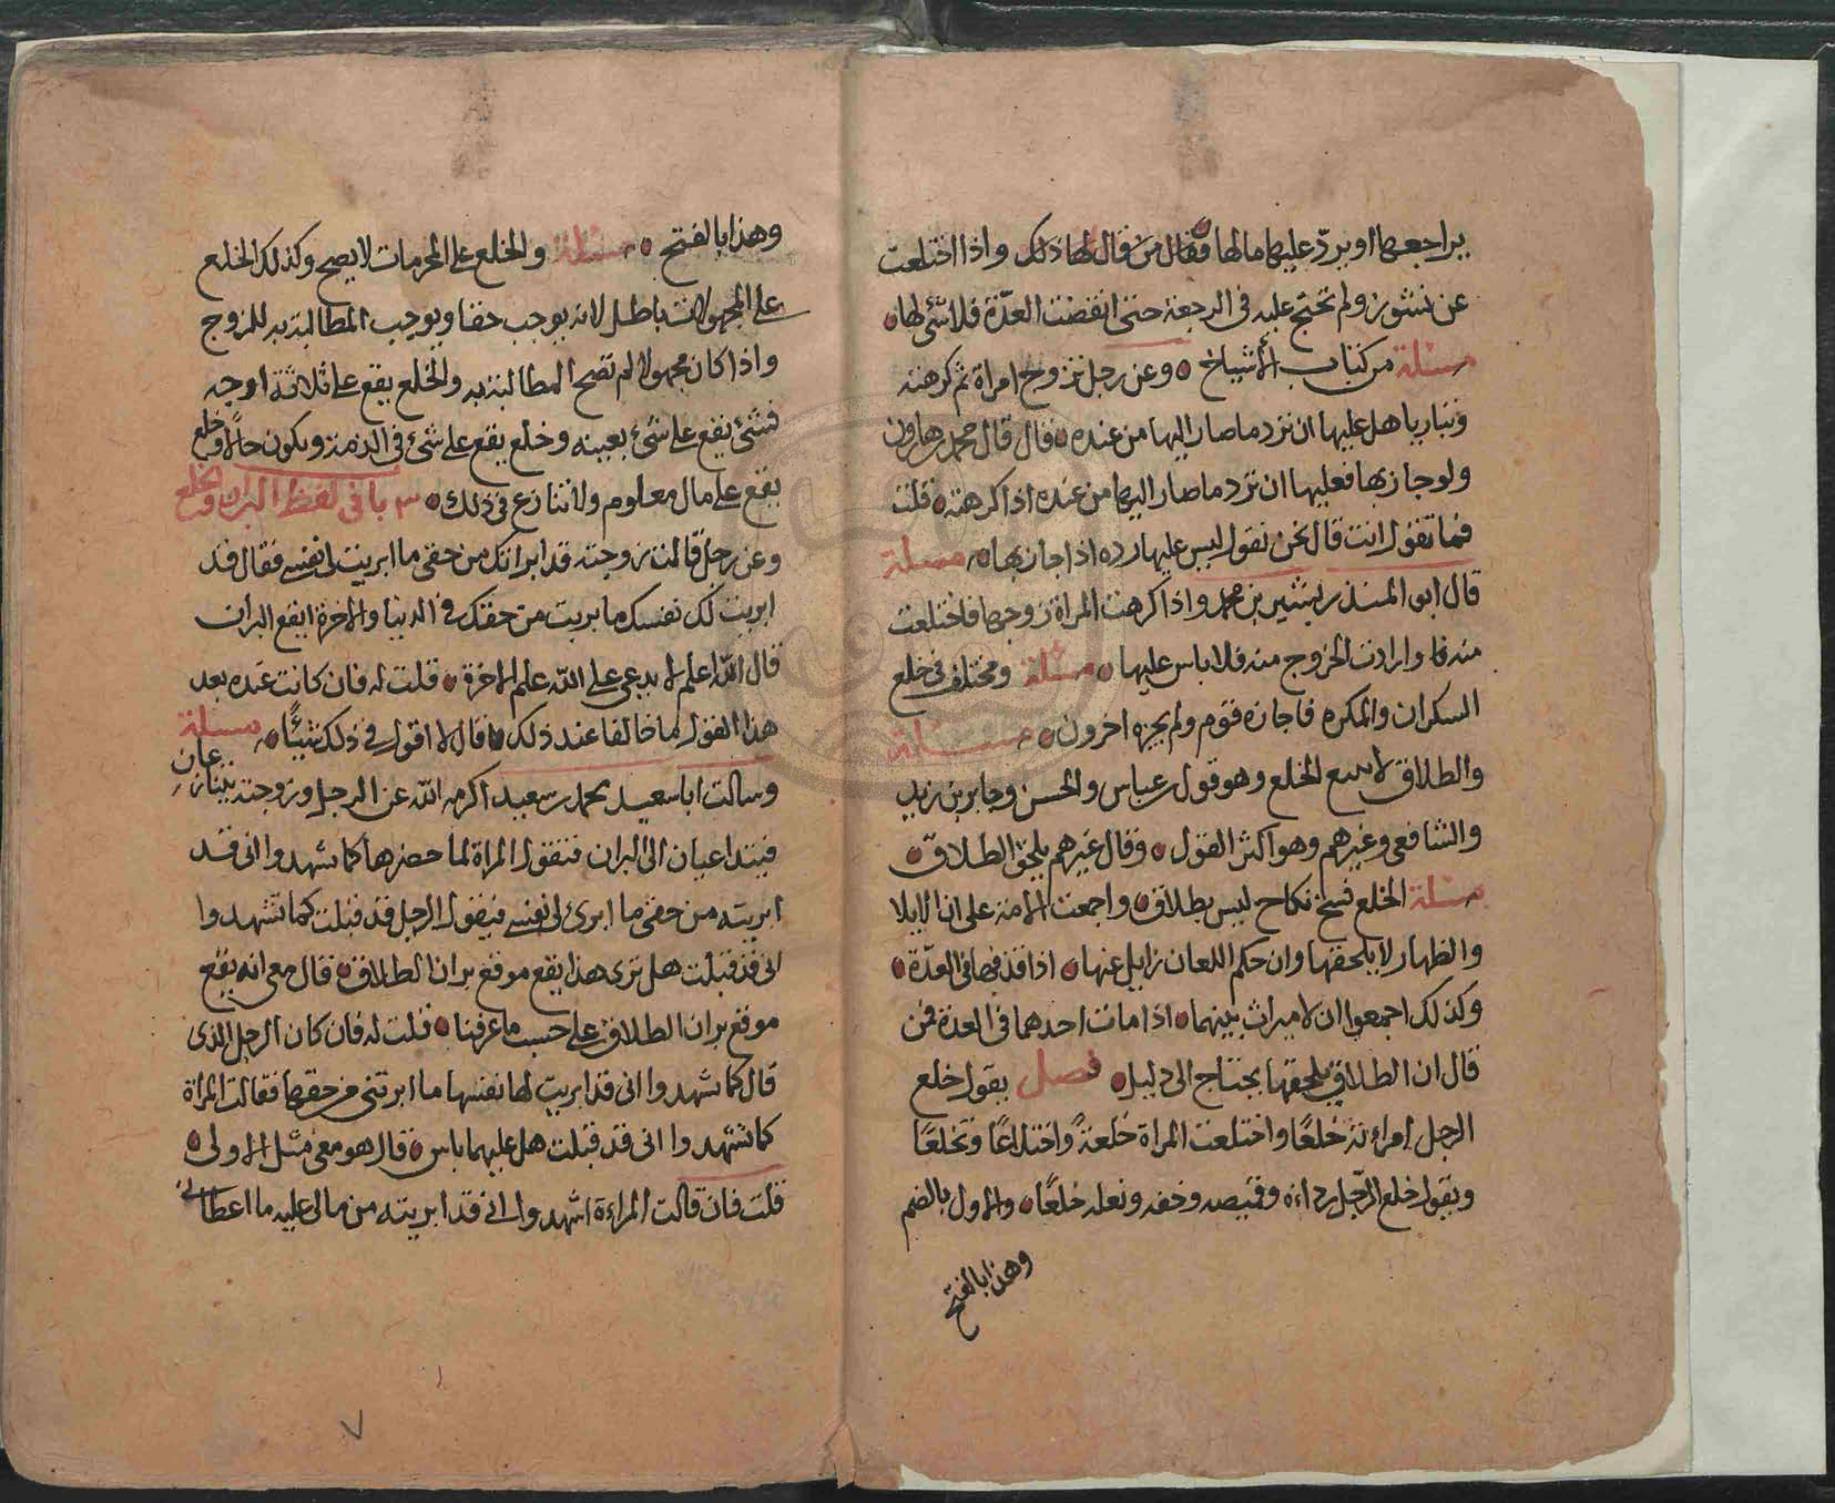 يراجعها او يردّ عليها مالها فقال من قال لها ذلك واذا اختلعت
عن نشوز ولم تحتج عليه في الرجعة حتى انقضت العدّة فلا شيء لها
مسئلة من كتاب الأشياخ وعن رجل تزوج امراة ثم كرهته
وتباريا هل عليها ان ترد ما صار اليها من عنده قال قال محمد بن هارون
ولو جاز بها فعليها ان ترد ما صار اليها من عنده اذا كرهته قلت
فما تقول انت قال نحن نقول ليس عليها رده اذا جاز بها مسئلة
قال ابو المنذر بشير بن محمد واذا كرهت المراة زوجها فاختلعت
منه وارادت الخروج منه فلا باس عليها مسئلة ومختلف في خلع
السكران والمكره فاجازه قوم ولم يجزه اخرون مسئلة
والطلاق لا يتبع الخلع وهو قول بن عباس والحسن وجابر بن زيد
والشافعي وغيرهم وهو اكثر القول وقال غيرهم يلحق الطلاق
مسئلة الخلع فسخ نكاح ليس بطلاق واجمعت الامة على ان الايلا
والظهار لا يلحقها وان حكم اللعان زايل عنها اذا قذفها في العدّة
وكذلك اجمعوا ان لا ميراث بينهما اذا مات احدهما في العدة فمن
قال ان الطلاق يلحقها يحتاج الى دليل فصل يقول خلع
الرجل امراءته خُلعًا واختلعت المراة خُلعةً واختلاعًا وتخلعًا
ويقول خلع الرّجل رداءه وقميصه وخفه ونعله خلعًا والاول بالضم
وهذا بالفتح
وهذا بالفتح مسئلة والخلع على المحرمات لا يصح وكذلك الخلع
على المجهولات باطل لانه يوجب حقا ويوجب المطالبة به للزوج
واذا كان مجهولا لم تصح المطالبة به والخلع يقع على ثلاثة اوجه
فشئ يقع على شئ بعينه وخلع يقع على شئ في الذمة ويكون حالاً وخلع
يقع على مال معلوم ولا تنازع في ذلك ٣ باب في لفظ البران والخلع
وعن رجل قالت زوجته قد ابراتك من حقي ما ابريت لي نفسي فقال قد
ابريت لك نفسك ما بريت من حقك في الدنيا والاخرة ايقع البران
قال الله اعلم لا يدعي على الله علم الاخرة قلت له فان كانت عنده بعد
هذا القول ما خالفا عند ذلك قال لا اقول في ذلك شيئًا مسئلة
وسالت ابا سعيد محمد بن سعيد اكرمه الله عن الرجل وزوجته يتنازعان
فيتداعيان الى البران فتقول المراة لما حضرها كما تشهدوا اني قد
ابريته من حقي ما ابرئ لي نفسي فيقول الرجل قد قبلت كما تشهدوا
اني قد قبلت هل ترى هذا يقع موقع بران الطلاق قال معي انه يقع
موقع بران الطلاق على حسب ما عرفنا قلت له فان كان الرجل الذي
قال كما تشهدوا اني قد ابريت لها نفسها ما ابرتني من حقها فقالت المراة
كما تشهدوا اني قد قبلت هل عليهما باس قال هو معي مثل الاولى
قلت فان قالت المراءة اشهدوا اني قد ابريته من مالي عليه ما اعطاني
٧